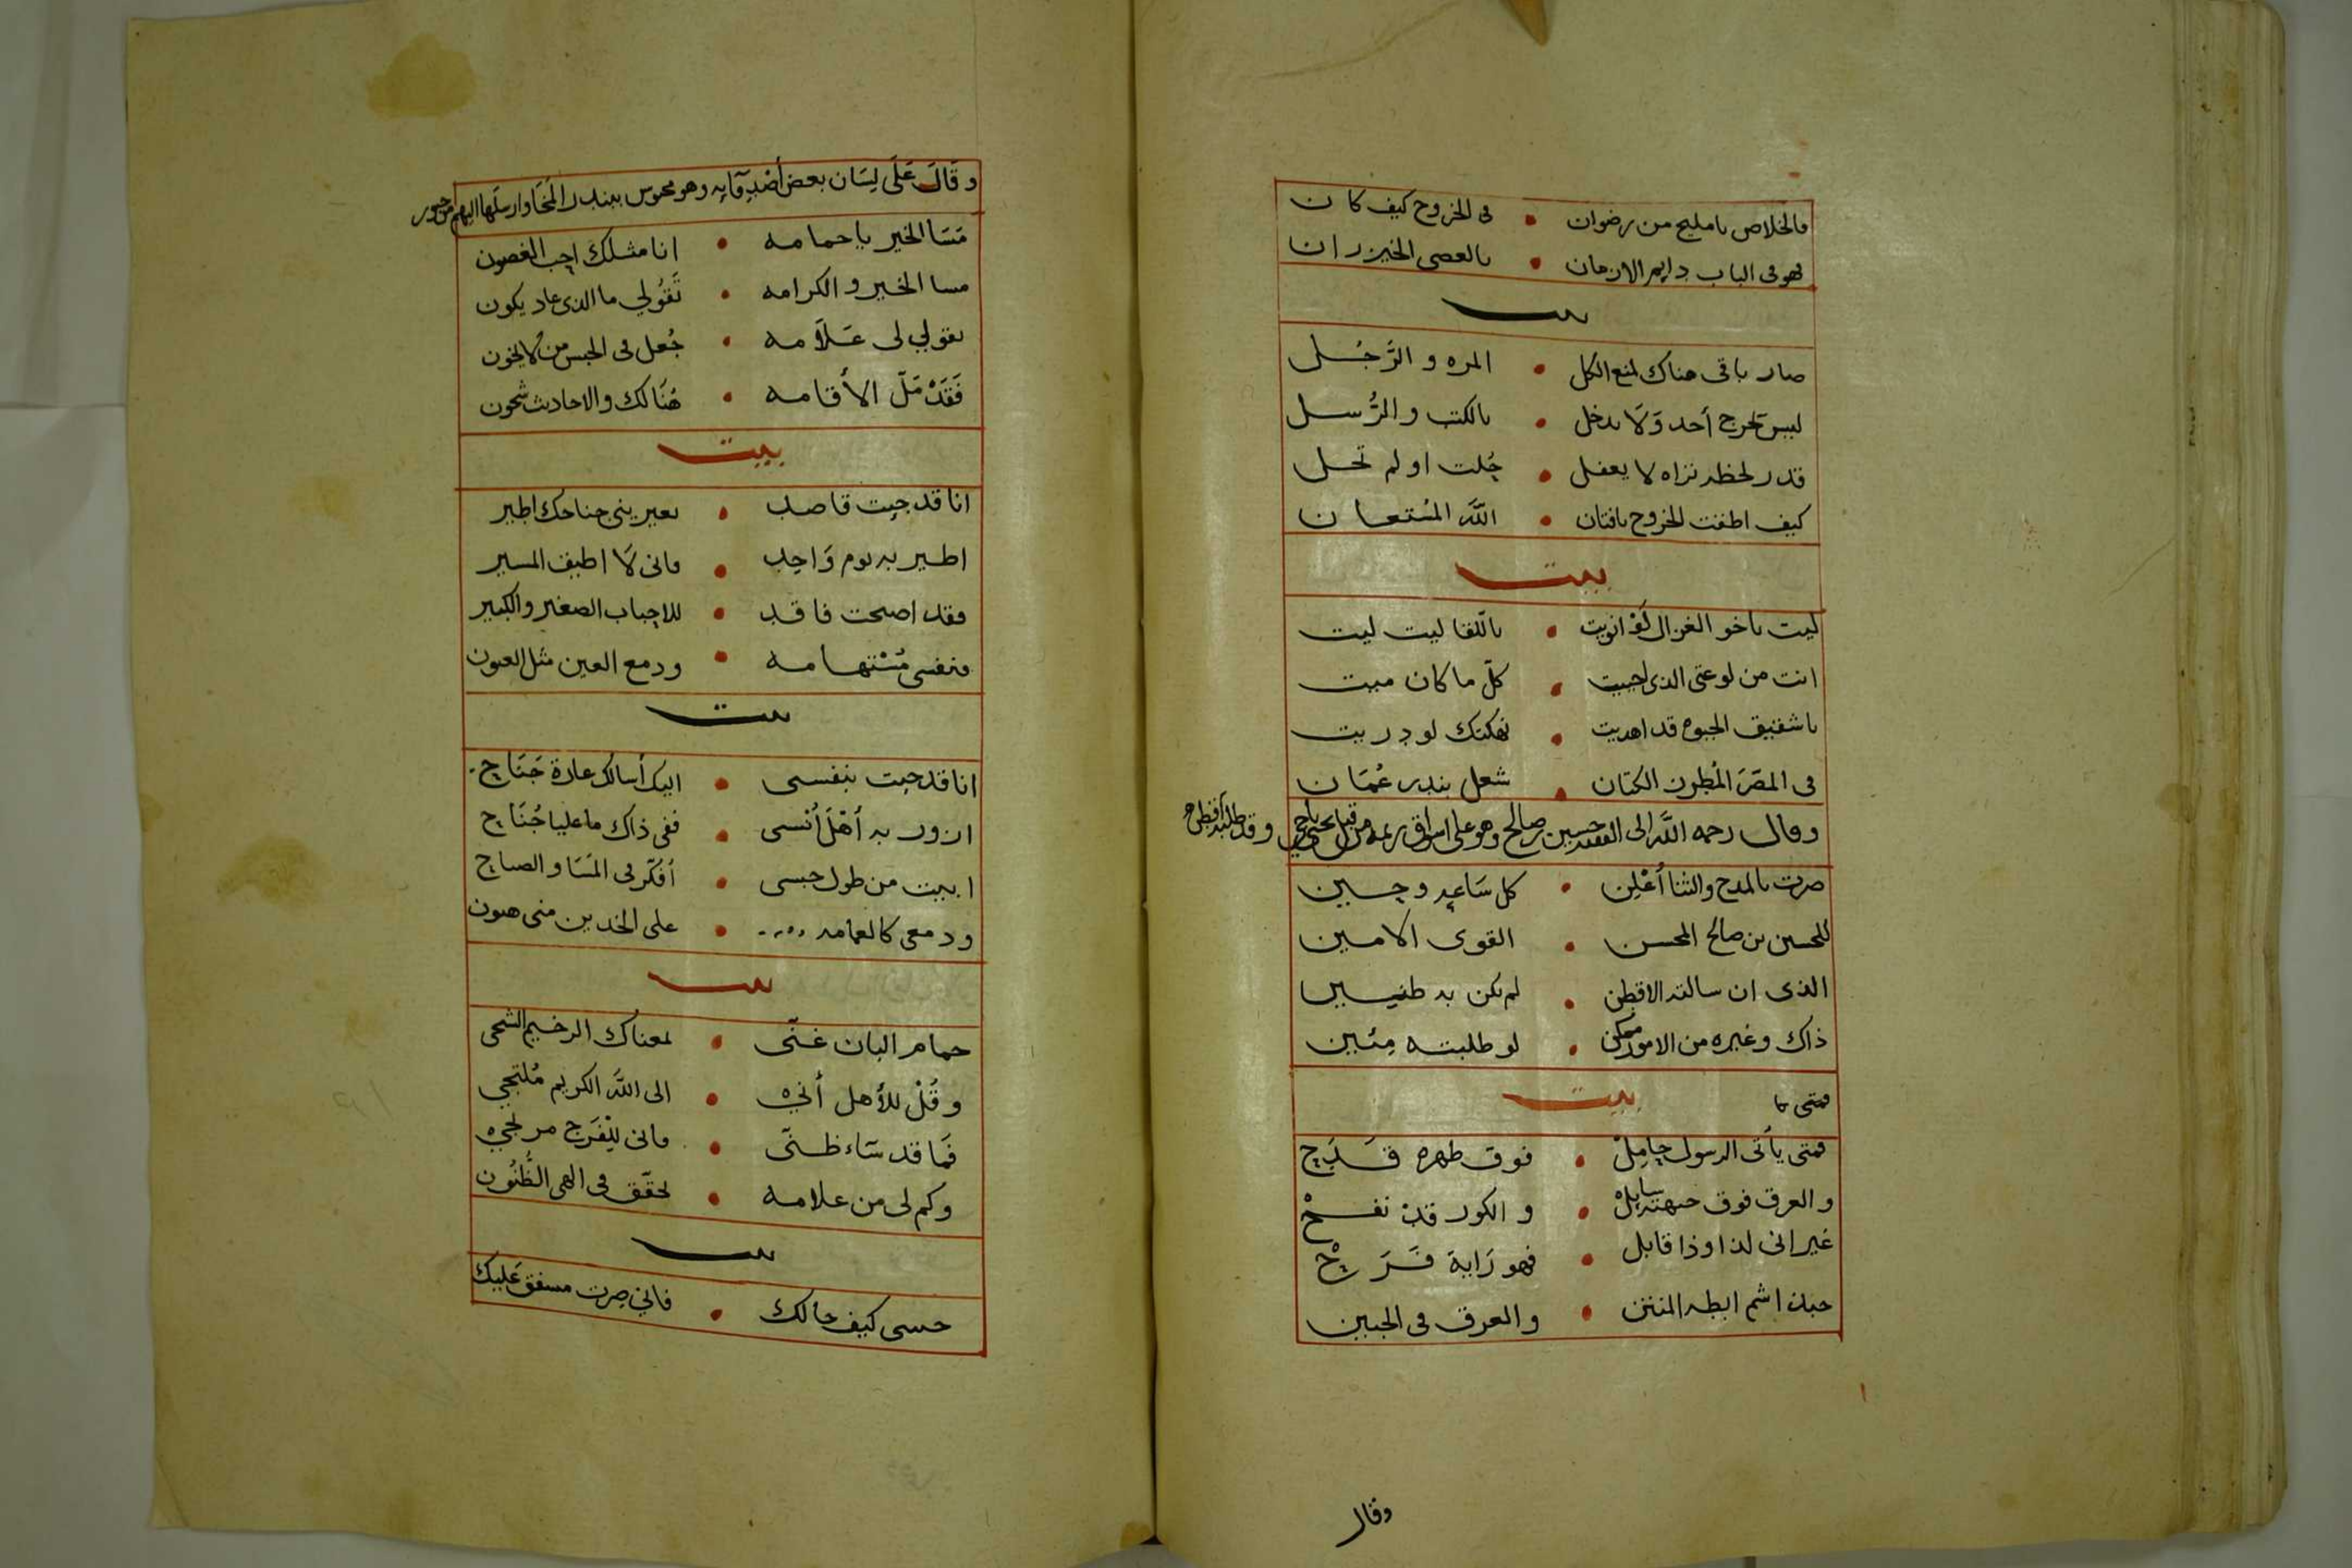 فالخلاص يا مليح من رضوان • في الخروج كيف كان
فهو في الباب دايم الازمان • بالعصى الخيزران
بيت
صار باقي هناك لمنع الكل • المره والرَّجُل
ليس يخرج أحد وَلَا يدخل • بالكتب والرُّسل
قدر لحظه تراه لا يغفل • حُلت او لم تحل
كيف اطقت الخروج يافتان • اللَّه المُستعان
بيت
ليت ياخو الغزال • باللقا ليت ليت
انت من لوعتي الذي احييت • كلّ ما كان ميت
يا شقيق • لو دريت
في المطرّز الكتان • شغل بندر عُمَان
وقال رحمه اللَّه الى الفقيه حسين صالح وهو على اسواق ريمه من قبل
صرت بالمدح والثنا أُعْلِن • كل سَاعه وحين
للحسين بن صالح المحسن • القوي الامين
الذي ان سالته الاقطن • لم يكن به ظنين
ذاك وغيره من الامور ممكن • لو طلبته مِئين
فمتى يا
بيت
فمتى يأتي الرسول حامِلْ • فوق ظهره قَدَح
والعرق فوق جبهته سايلْ • والكور قدْ نفحْ
غير اني لذا وذا قابل • فهو رَاية فَرَحْ
حين اشم ابطه المنتن • والعرق في الجبين
وقال
وقَالَ عَلَى لِسَان بعض أصْدِقَايه وهو محبوس ببندر المُخَا وارسلها اليهم من حبور
مَسَا الخير يا حمامه • انا مثلك احب الغصون
مسا الخير والكرامه • تَقُولي ما الذي عاد يكون
تقولي لى عَلَامه • جُعل في الحبس من لا يخون
فَقَدْ مَلّ الأقامه • هُنَالك والاحاديث شجون
بيت
انا قد جيت قاصد • تعيريني جناحك اطير
اطير به يوم وَاحِد • فاني لَا اطيق المسير
فقد اصبحت فاقد • للاحباب الصغير والكبير
فنفسي مُسْتهامه • ودمع العين مثل العيون
بيت
انا قد جيت بنفسي • اليك أسالك عارة جَنَاح
ازور به أهْلَ أُنسى • ففي ذاك ما عليا جُنَاح
ابيت من طول حبسى • أفكّر في المَسَا والصباح
ودمعى كالغمامه • على الخدين مني هتون
بيت
حمام البان غنّى • لمغناك الرخيم الشجي
وقُلْ للأهل أنّي • الى اللَّه الكريم مُلتجي
فَمَا قد سَاء ظنّى • فاني للفَرَج مرتجي
وكم لى من علامه • تحقّق في الهى الظُّنُون
بيت
حسى كيف حالك • فاني صرت مشفق عَليك